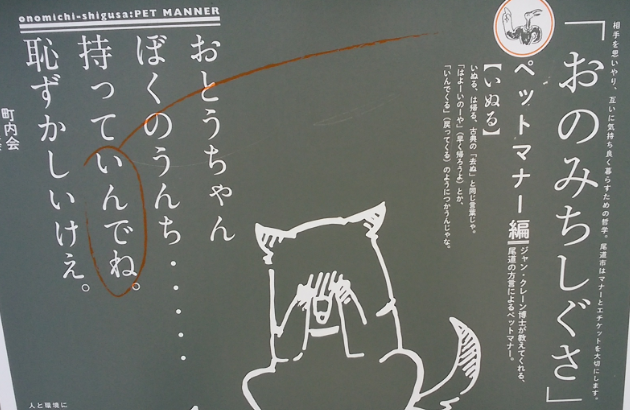 onomichi-shigusa:PET MANNER
相手を思いやり、互いに気持ち良く暮らすための哲学。尾道市はマナーとエチケットを大切にします。
「おのみちしぐさ」
ペットマナー編
ジャン・クレーン博士が教えてくれる、
尾道の方言によるペットマナー。
【いぬる】
いぬる、は帰る、古典の「去ぬ」と同じ言葉じゃ。
「はよーいのーや」(早く帰ろうよ)とか、
「いんでくる」(戻ってくる)のようにつかうんじゃな。
おとうちゃん
ぼくのうんち・・・・・・
持っていんでね。
恥ずかしいけえ。
町内会
人と環境に